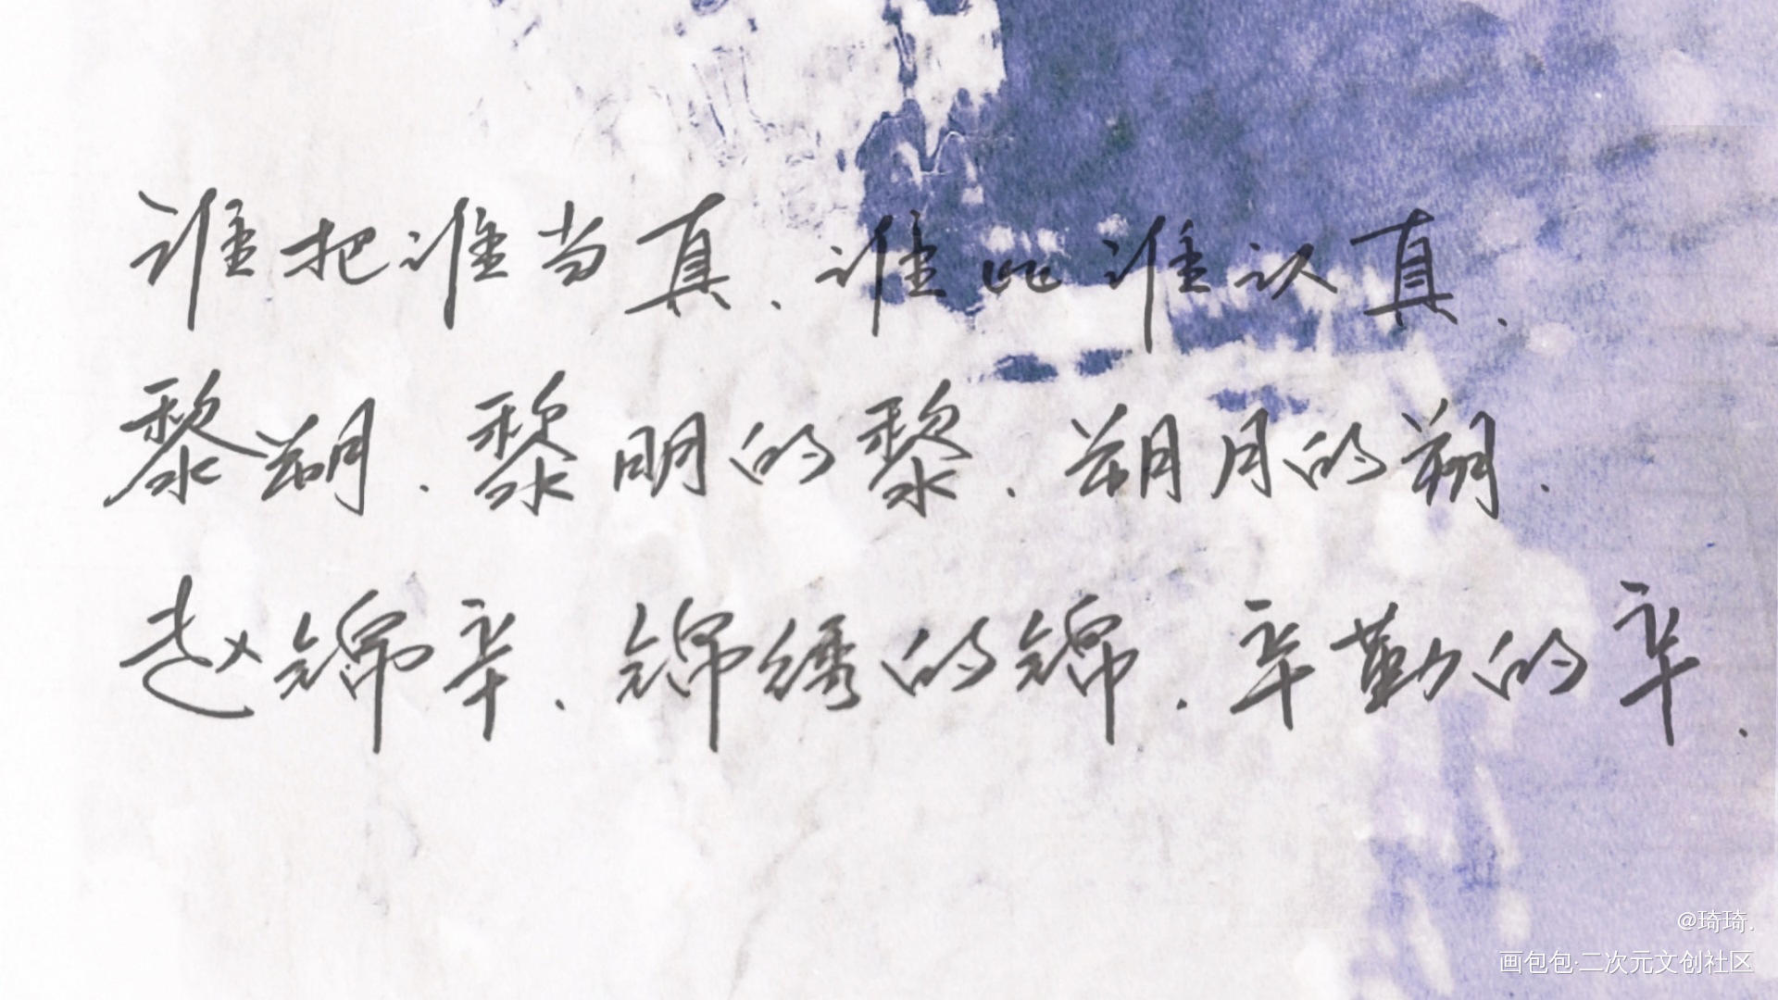 谁把谁当真、谁比谁认真.
黎朔.黎明的黎.朔月的朔.
赵锦辛.锦绣的锦.辛勤的辛.
@琦琦.
画包包·二次元文创社区